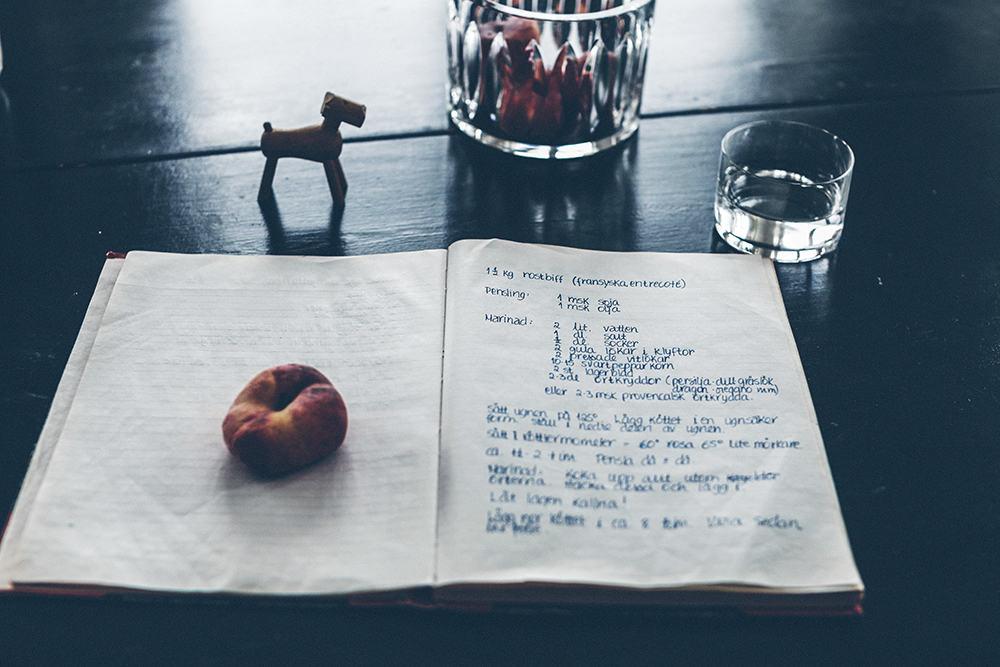 1½ kg rostbiff (fransyska, entrecoté)
Pensling: 1 msk soja
1 msk olja
Marinad: 2 lit. vatten
1 dl. salt
½ dl. socker
2 gula lökar i klyftor
2 pressade vitlökar
10-15 svartpepparkorn
2 st lagerblad
2-3 dl örtkryddor (persilja-dill gräslök
dragon-oregano mm)
eller 2-3 msk provencalsk örtkrydda.
Sätt ugnen på 125° Lägg köttet i en ugnsäker
form. Ställ i nedre delen av ugnen.
Sätt i köttermometer - 60° rosa 65° lite mörkare
ca. 1½ - 2 tim. Pensla då & då.
Marinad: Koka upp allt utom
örterna Hacka dessa och lägg i.
Låt lagen kallna!
Lägg ner köttet i ca 8 tim. Vänd sedan